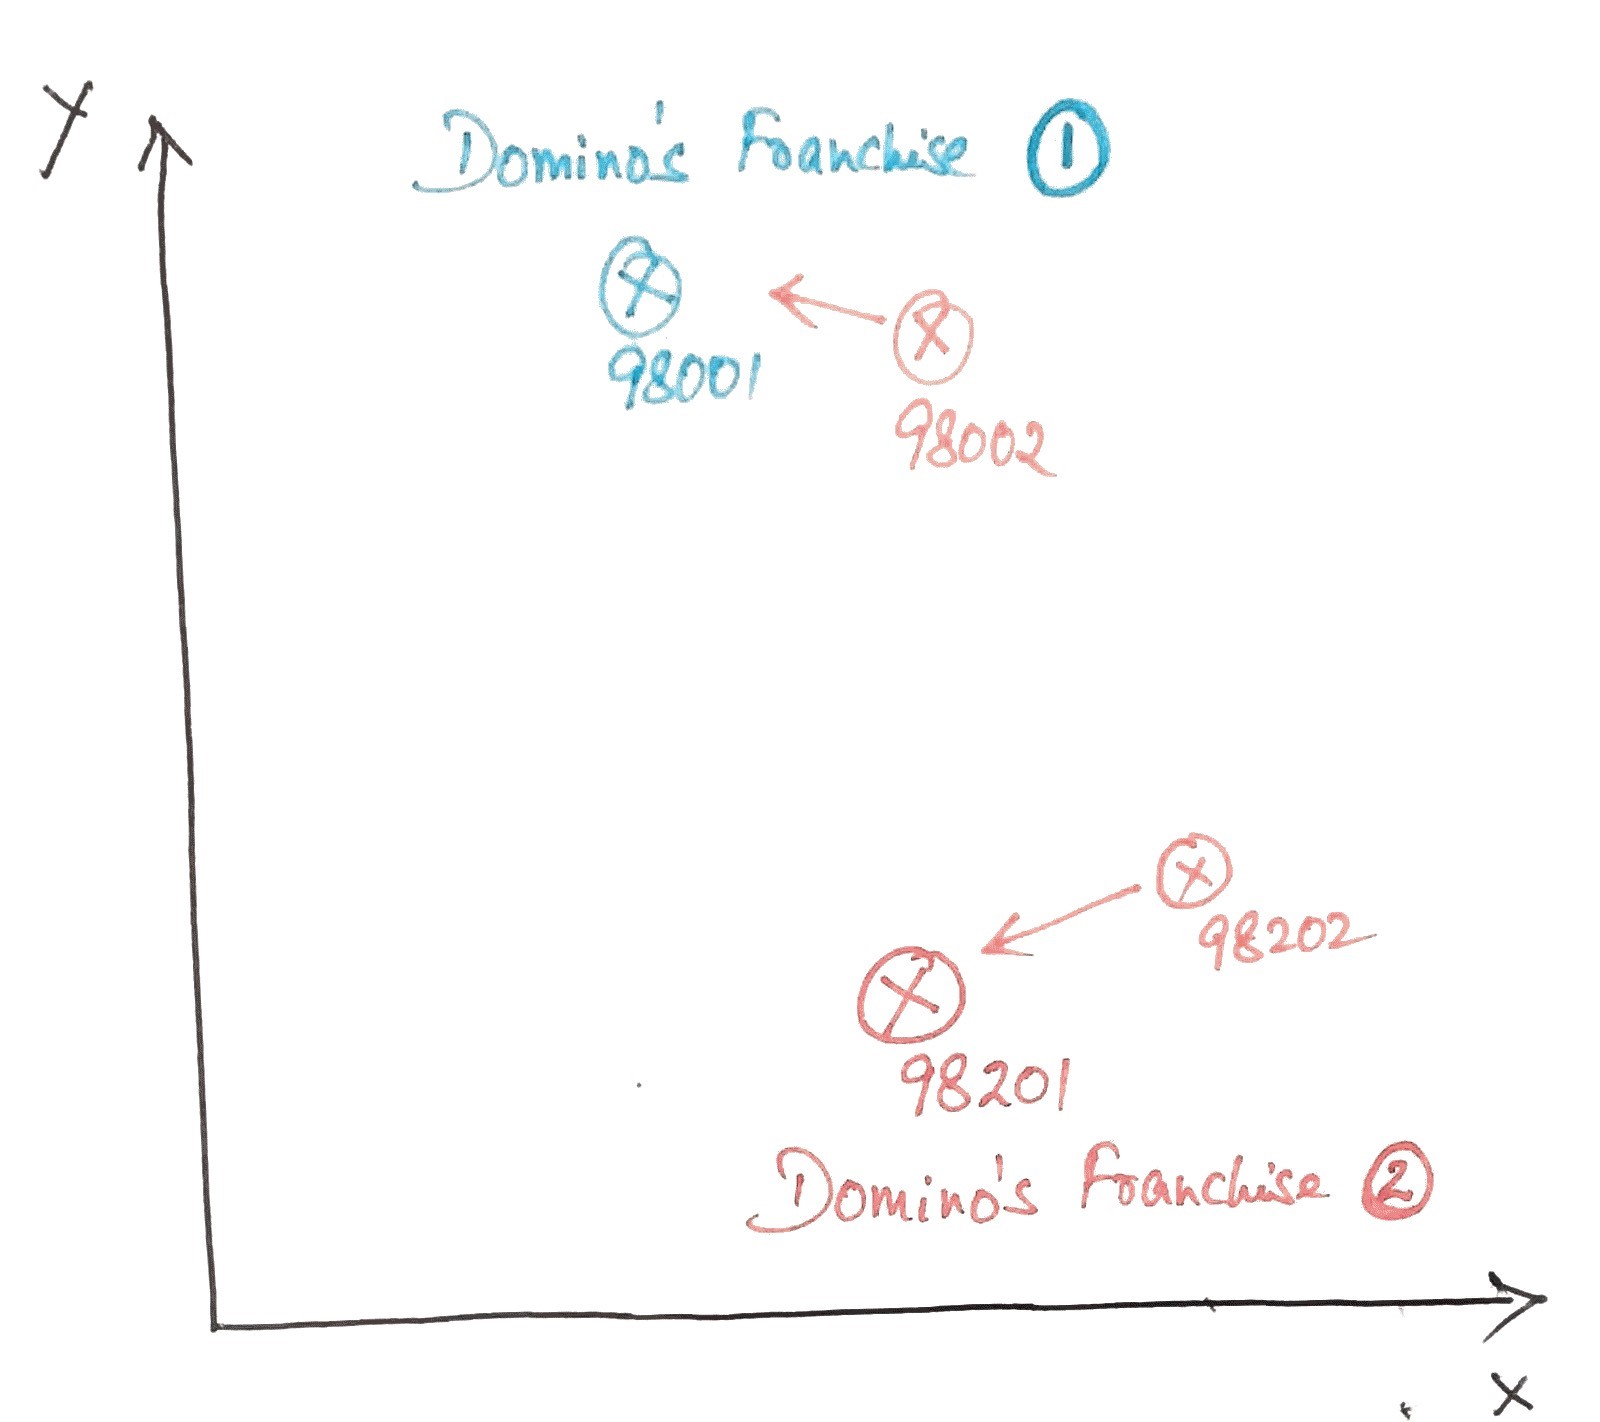 Y
Domino's Franchise 1
98001
98002
98202
98201
Domino's Franchise 2
X